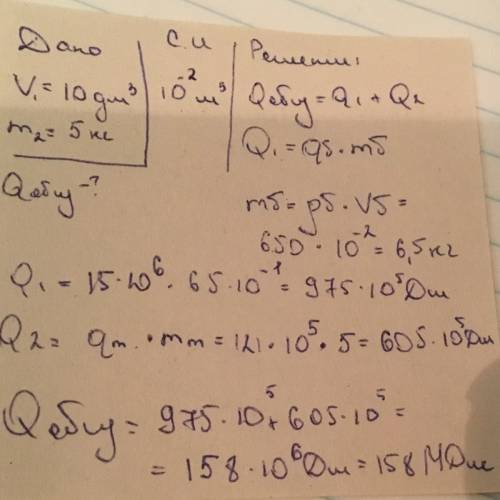 Дано
V₁ = 10 дм³
m₂ = 5 кг
Qобщ - ?
С.И
10⁻² м³
Решение:
Qобщ = Q₁ + Q₂
Q₁ = qб · mб
mб = ρб · Vб =
650 · 10⁻² = 6,5 кг
Q₁ = 15 · 10⁶ · 65 · 10⁻¹ = 975 · 10⁵ Дж
Q₂ = qт · mт = 121 · 10⁵ · 5 = 605 · 10⁵ Дж
Qобщ = 975 · 10⁵ + 605 · 10⁵ =
= 158 · 10⁶ Дж = 158 МДж